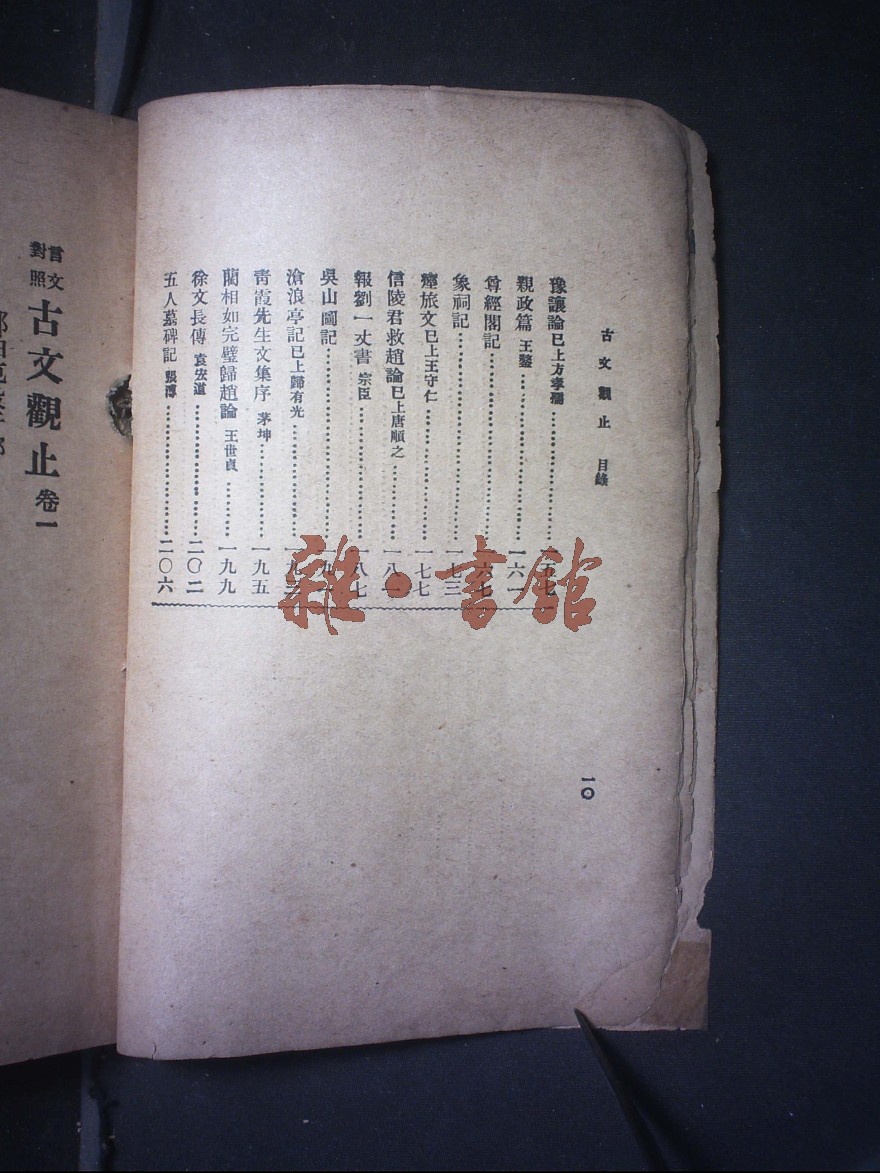 古文觀止　目錄
一〇
豫讓論 已上方孝孺……一五七
親政篇 王鏊……一六一
尊經閣記……一六七
象祠記……一七三
瘞旅文 已上王守仁……一七七
信陵君救趙論 已上唐順之……一八一
報劉一丈書 宗臣……一八七
吳山圖記……一九一
滄浪亭記 已上歸有光……一九三
青霞先生文集序 茅坤……一九五
藺相如完璧歸趙論 王世貞……一九九
徐文長傳 袁宏道……二〇二
五人墓碑記 張溥……二〇六
雜·書館
言文對照 古文觀止 卷一